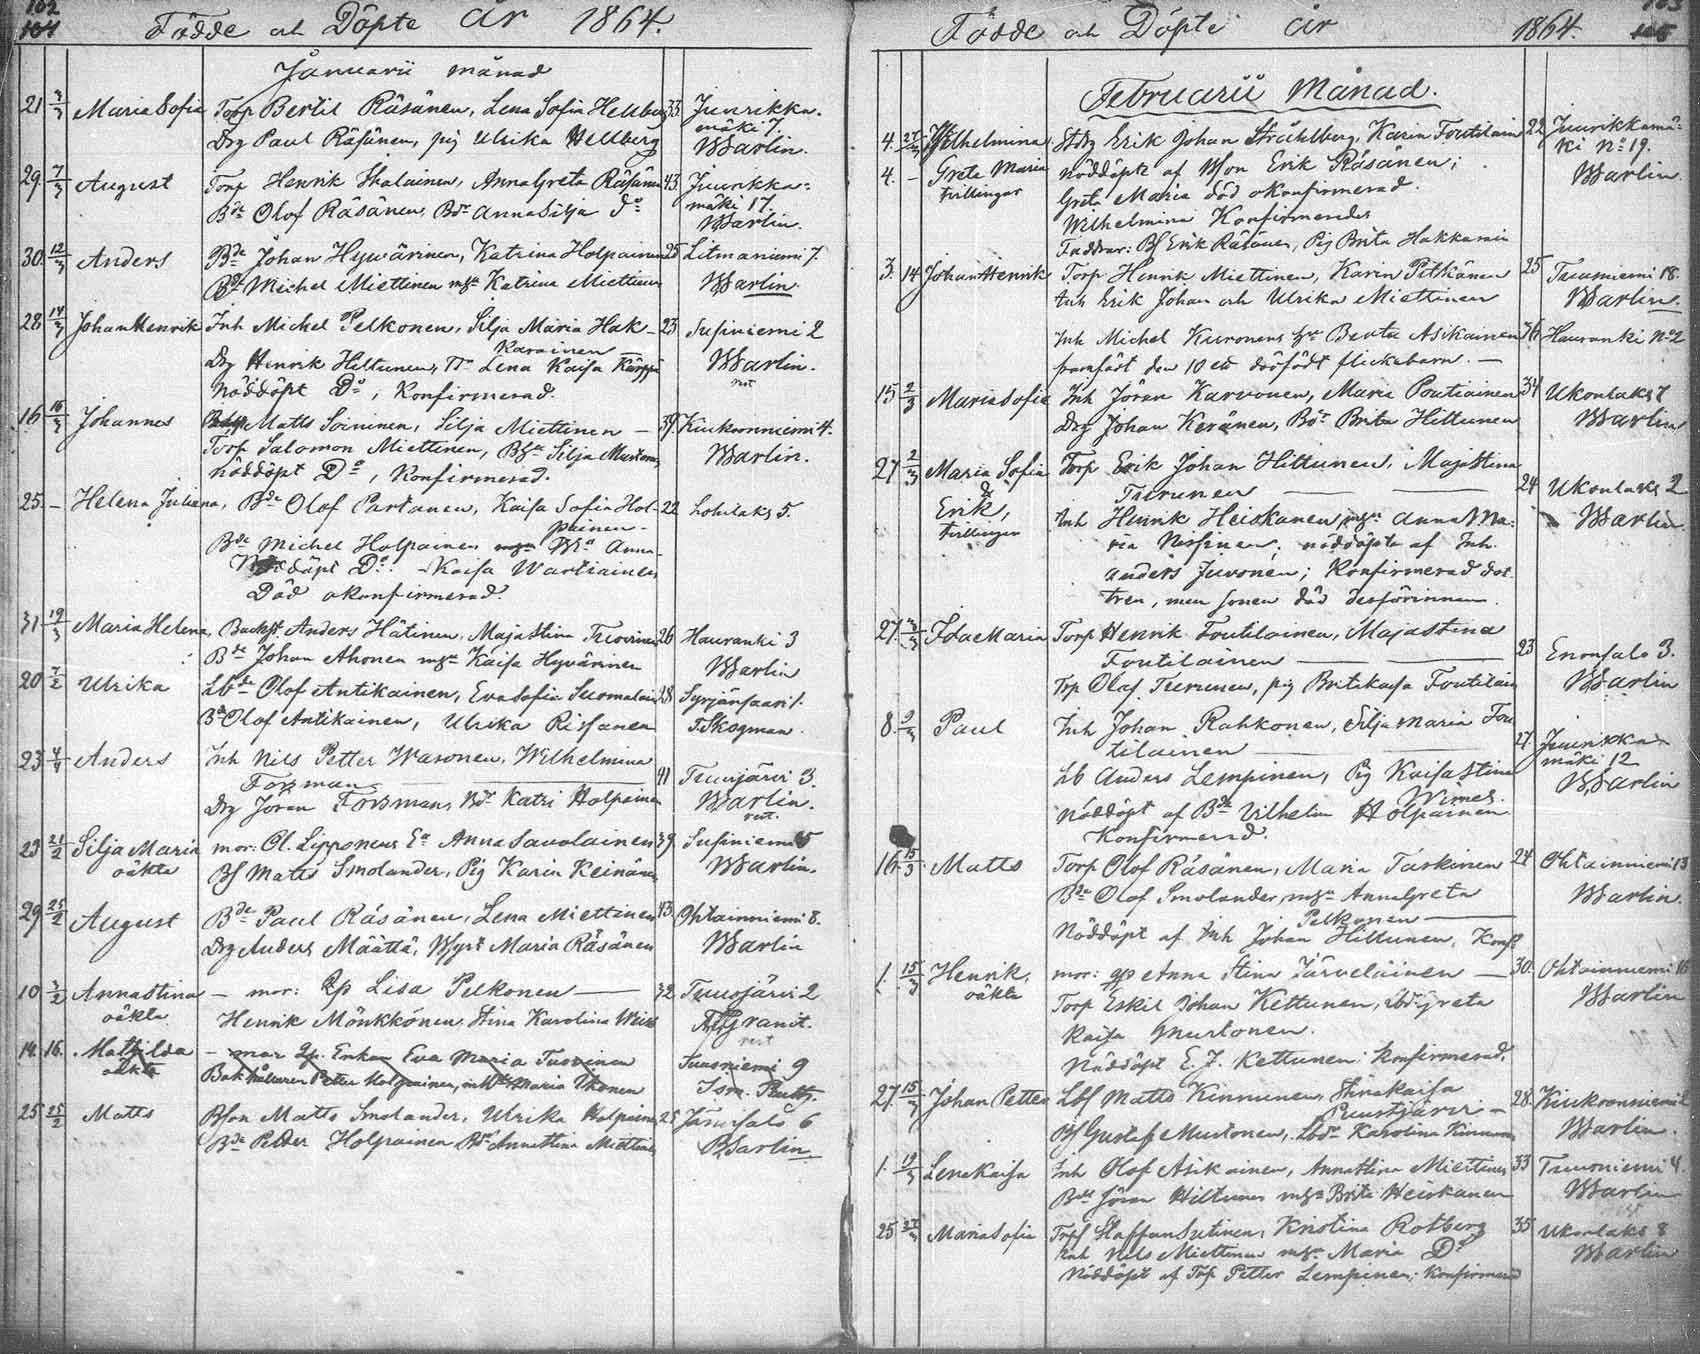 102
104
Födde och Döpte År 1864.
Januarii månad
21 3/3 Maria Sofia Torp Bertil Räsänen, Lena Sofia Hellberg 33 Juurikka-
mäki 7.
Drg Paul Räsänen, pig Ulrika Hellberg Warlin.
29. 7/3 August Torp Henrik Ikalainen, Anna Greta Räsänen 43. Juurikka-
mäki 17.
Bde Olof Räsänen, Bdr Anna Silja do Warlin.
30. 12/3 Anders Bde Johan Hyvärinen, Katrina Holpainen 25 Litmaniemi 7.
Bde Michel Miettinen mga Katrina Miettinen Warlin.
28 14/3 Johan Henrik Inh Michel Pelkonen, Silja Maria Hak- 23 Susiniemi 2
karainen
Drg Henrik Hiltunen, Lena Kaisa Kärppä Warlin.
Nöddöpt Do; Konfirmerad.
16 16/3 Johannes Matts Soininen, Silja Miettinen — 39. Kiukonniemi 4.
Torp Salomon Miettinen, Silja Mustonen Warlin.
Nöddöpt Do, Konfirmerad.
25. – Helena Juliana, Bde Olof Partanen, Kaisa Sofia Hol- 22 Lohilaks 5.
painen-
Bde Michel Holpainen Anna
Nöddöpt Do. -Kaisa Wartiainen
Död okonfirmerad.
31 19/3 Maria Helena, Backst. Anders Hätinen, Majastina Turunen 26 Hauranki 3
Bde Johan Ahonen mga Kaisa Hyvärinen Warlin
20 7/2 Ulrika Lbde Olof Antikainen, Eva Sofia Suomalain 38 Syrjänsaari 1.
Bd Olof Antikainen, Ulrika Rissanen FSkogman.
23 4/4 Anders Inh Nils Petter Waronen, Wilhelmina
Forsman 41 Tuusjärvi 3.
Drg Jöran Forsman, Bdr Katri Holpainen Warlin.
23 21/2 Silja Maria mor: Ol. Lipponens Ea Anna Savolainen 39. Susiniemi 5
oäkta Bs Matts Smolander, Pig Karin Keinänen Warlin.
29 25/2 August Bde Paul Räsänen, Lena Miettinen 43. Ohtainniemi 8.
Drg Anders Määttä, Maria Räsänen Warlin
10 3/2 Annastina – mor: Lisa Pelkonen — 32. Tuusjärvi 2
oäkta Henrik Mönkkönen, Stina Karolina Granit.
14. 16. Mathilda – mor Enkan Eva Maria Tuovinen Tuusniemi 9
oäkta Bokhållaren Petter Holpainen, Maria Ikonen
25 25/2 Matts Bson Matts Smolander, Ulrika Holpainen 25 Jänisalo 6
Bde Petter Holpainen Bdr Annastina Miettinen Warlin
103
105
Födde och Döpte år 1864.
Februarii Månad.
4. 27/3 Wilhelmina Stdrg Erik Johan Stråhlberg, Karin Toutilain 22 Juurikkamä-
ki No 19.
4. – Greta Maria Nöddöpte af Bson Erik Räsänen; Warlin.
tvillingar Greta Maria död okonfirmerad.
Wilhelmina Konfirmerades
Faddrar: Bs Erik Räsänen, Pig Brita Hakkarain
3. 14 Johan Henrik Torp Henrik Miettinen, Karin Pitkänen 25 Tuusniemi 18.
Inh Erik Johan och Ulrika Miettinen Warlin.
Inh Michel Kuronens hu Beata Asikainen 36 Hauranki No 2
framfödt den 10 ett dödfödt flickebarn. —
15 2/3 Maria Sofia Inh Jöran Karvonen, Maria Poutiainen 34 Ukonlaks 7
Drg Johan Keränen, Bdr Brita Hiltunen Warlin
27 2/3 Maria Sofia Torp Erik Johan Hiltunen, Majastina
& Turunen — 24 Ukonlaks 2
Erik, Inh Henrik Heiskanen mga Anna Ma- Warlin
tvillingar ria Nissinen; nöddöpta af Inh.
Anders Juvonen; Konfirmerad dot-
tren, men sonen död desförinnan.
27. Ida Maria Torp Henrik Toutilainen, Majastina
Toutilainen — 23 Enonsalo 3.
Trp Olof Turunen, pig Britakaisa Toutilain Warlin
8. 9/3 Paul Inh Johan Rahkonen, Silja Maria Tou
tilainen — 27. Juurikka-
mäki 12
Lb Anders Lempinen, Pig Kaisa Stina Warlin
Wimes.
Nöddöpt af Bde Vilhelm Holpainen
Konfirmerad.
16. 15/3 Matts Torp Olof Räsänen, Maria Taskinen 24 Ohtainniemi 13
Bde Olof Smolander, mga Anna Greta Warlin.
Pelkonen —
Nöddöpt af Inh Johan Hiltunen, Konf.
1. 15/3 Henrik, mor: Anna Stina Järveläinen — 30. Ohtainniemi 16
oäkta Torp Eskil Johan Kettunen, Greta Warlin
Kaisa Mustonen.
Nöddöpt E. J. Kettunen: Konfirmerad.
27. 15/3 Johan Petter Lbs Matts Kinnunen, Stinakaisa 28. Kiukonniemi 2
Puustjärvi –
Bs Gustaf Mustonen, Lbdr Karolina Kinnunen Warlin.
1. 19/3 Lena Kaisa Inh Olof Asikainen, Annastina Miettinen 33 Tuusniemi 4.
Bde Jöran Hiltunen mga Brita Heiskanen Warlin
25 27/3 Maria Sofia Trp Staffan Sutinen, Kristina Rotberg 35 Ukonlaks 8
Inh Nils Miettinen mga Maria Do Warlin
Nöddöpt af Trp Petter Lempinen; Konfirmerad